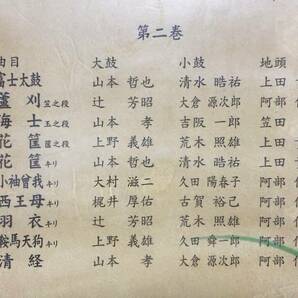 第二巻
曲目 大鼓 小鼓 地頭
富士太鼓 山本 哲也 清水 晧祐 上田
蘆刈 笠之段 辻 芳昭 大倉 源次郎 阿部
海士 玉之段 山本 孝 吉阪 一郎 笠田
花筐 筐之段 上野 義雄 荒木 照雄 上田
花筐 キリ 山本 哲也 清水 晧祐 上田
小袖曽我 キリ 大村 滋二 久田 陽春子 阿部
西王母 キリ 梶井 厚佑 古賀 裕己 阿部
羽衣 キリ 辻 芳昭 荒木 照雄 阿部
鞍馬天狗 キリ 上野 義雄 久田 舜一郎 阿部
清経 山本 孝 大倉 源次郎 阿部